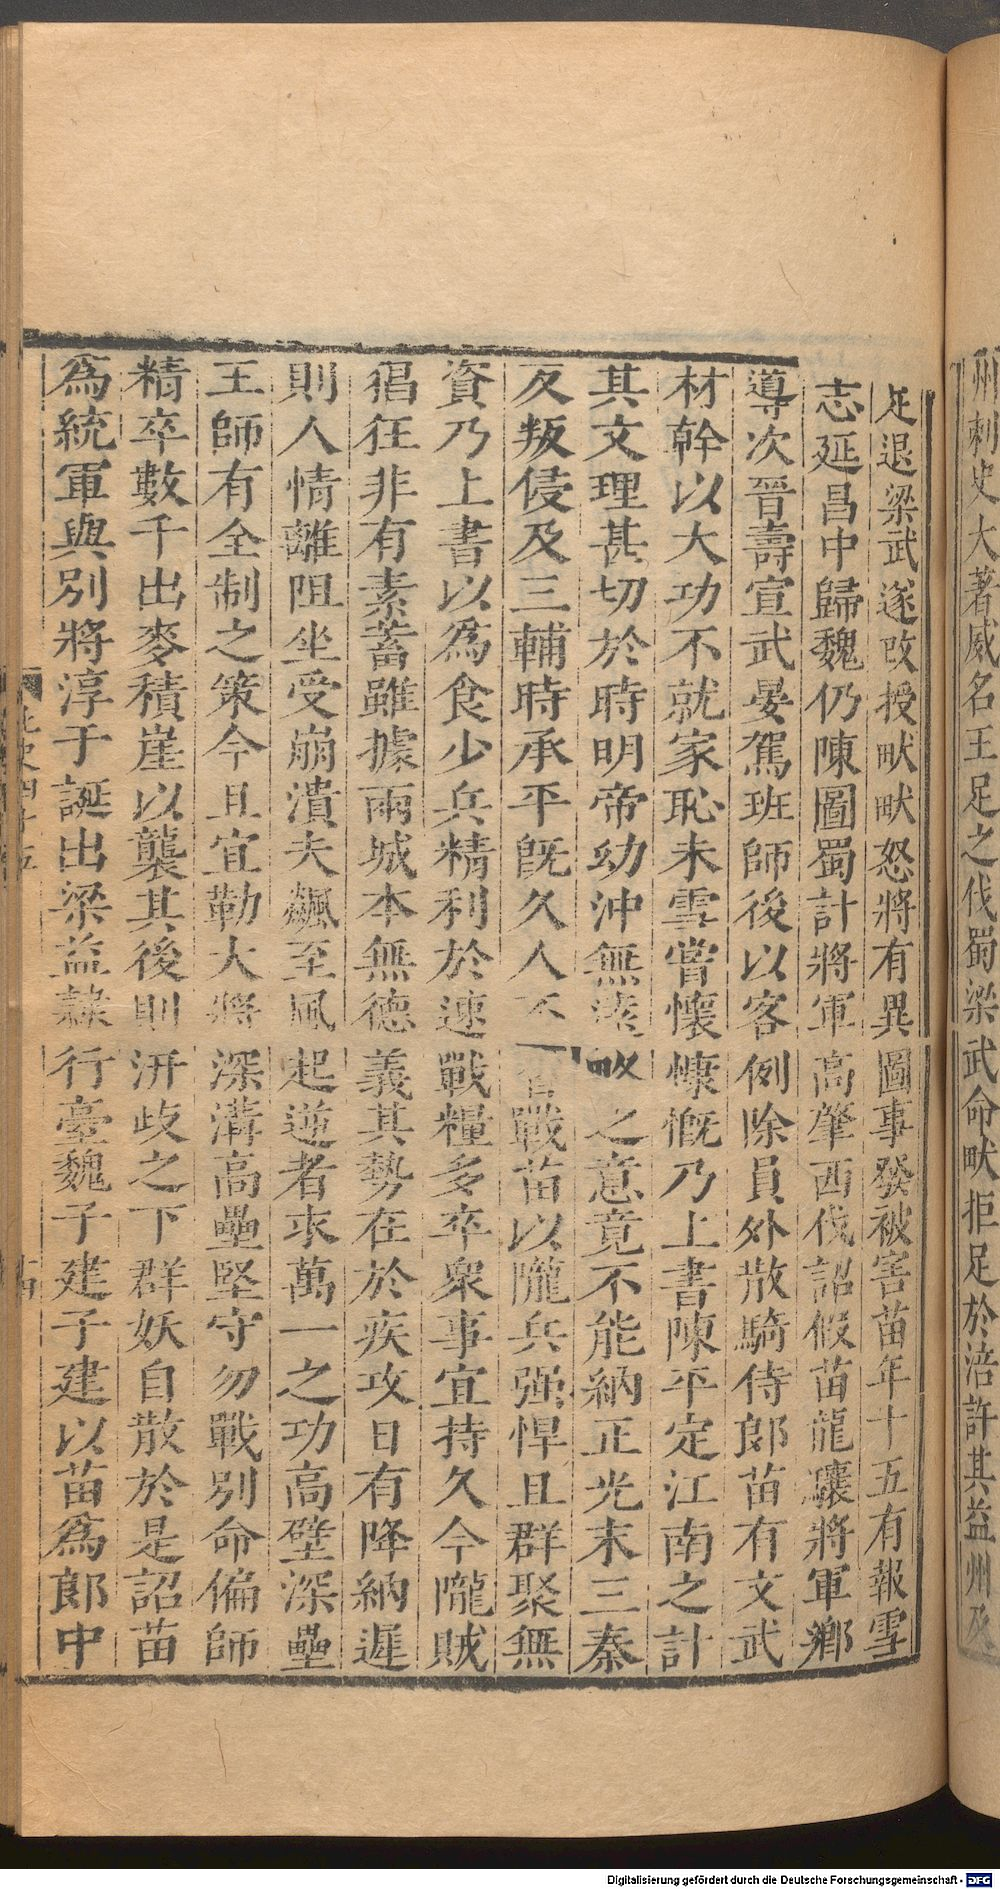 州刺史大著威名王足之伐蜀梁武命畎拒足於涪許其益州及
足退梁武遂改授畎畎怒將有異圖事發被害苗年十五有報雪
志延昌中歸魏仍陳圖蜀計將軍高肇西伐詔假苗龍驤將軍鄉
導次晉壽宣武晏駕班師後以客例除員外散騎侍郎苗有文武
材幹以大功不就家恥未雪嘗懷慷慨乃上書陳平定江南之計
其文理甚切於時明帝幼沖無遠略之意竟不能納正光末三秦
反叛侵及三輔時承平旣久人不習戰苗以隴兵强悍且群聚無
資乃上書以爲食少兵精利於速戰糧多卒衆事宜持久今隴賊
猖狂非有素蓄雖據兩城本無德義其勢在於疾攻日有降納遲
則人情離阻坐受崩潰夫飆至風起逆者求萬一之功高壁深壘
王師有全制之策今且宜勒大將深溝高壘堅守勿戰別命偏師
精卒數千出麥積崖以襲其後則汧歧之下群妖自散於是詔苗
爲統軍與別將淳于誕出梁益隸行臺魏子建子建以苗爲郎中
北史四十五
十四
Digitalisierung gefördert durch die Deutsche Forschungsgemeinschaft - DFG